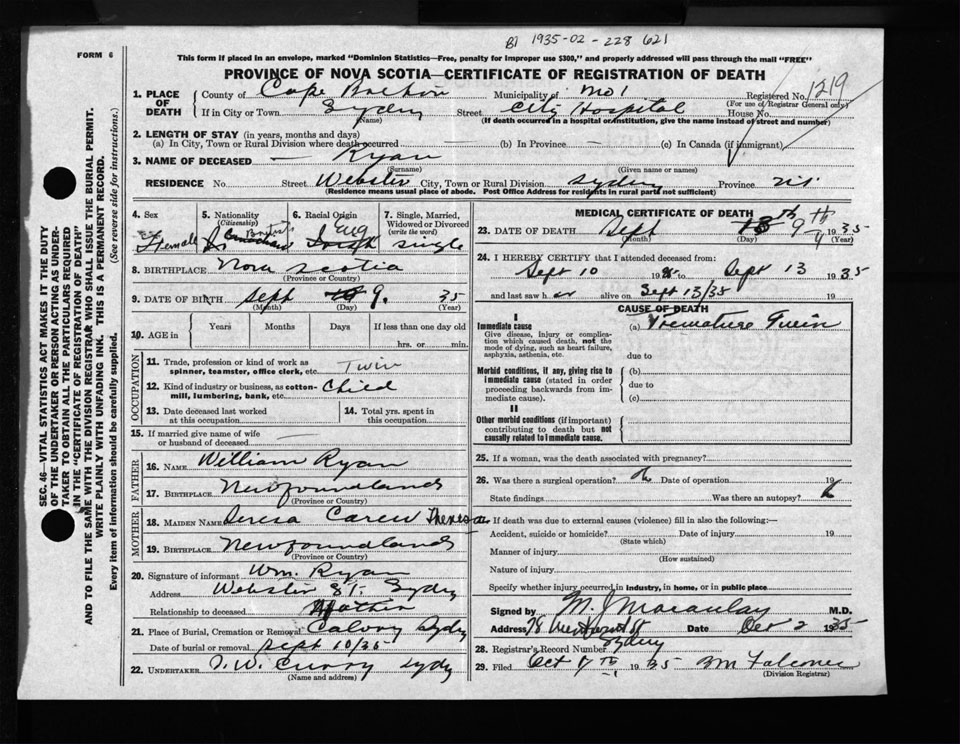 B1 1935-02-228 621
FORM 6
This form if placed in an envelope, marked "Dominion Statistics—Free, penalty for improper use $300," and properly addressed will pass through the mail "FREE"
PROVINCE OF NOVA SCOTIA—CERTIFICATE OF REGISTRATION OF DEATH
1. PLACE OF DEATH
County of Cape Breton Municipality of No 1 Registered No. 1219
(For use of Registrar General only)
If in City or Town Sydney Street City Hospital House No.
(Name) (If death occurred in a hospital or institution, give the name instead of street and number)
2. LENGTH OF STAY (in years, months and days)
(a) In City, Town or Rural Division where death occurred (b) In Province — (c) In Canada (if immigrant)
3. NAME OF DECEASED — Ryan
(Surname) (Given name or names)
RESIDENCE No. Street Webster City, Town or Rural Division Sydney Province N.S.
(Residence means usual place of abode. Post Office Address for residents in rural parts not sufficient)
4. Sex 5. Nationality (Citizenship) 6. Racial Origin 7. Single, Married, Widowed or Divorced (write the word)
Female British Canadian Eng Irish Single
8. BIRTHPLACE Nova Scotia
(Province or Country)
9. DATE OF BIRTH Sept 10 9. 35
(Month) (Day) (Year)
10. AGE in Years Months Days If less than one day old
hrs. or min.
OCCUPATION
11. Trade, profession or kind of work as spinner, teamster, office clerk, etc. Twin
12. Kind of industry or business, as cotton-mill, lumbering, bank, etc. Child
13. Date deceased last worked at this occupation
14. Total yrs. spent in this occupation
15. If married give name of wife or husband of deceased —
FATHER
16. NAME William Ryan
17. BIRTHPLACE Newfoundland
(Province or Country)
MOTHER
18. MAIDEN NAME Teresa Carew Theresa
19. BIRTHPLACE Newfoundland
(Province or Country)
20. Signature of informant Wm. Ryan
Address Webster St. Sydney
Relationship to deceased Father
21. Place of Burial, Cremation or Removal Calvary Sydney
Date of burial or removal Sept 10/35
22. UNDERTAKER T. W. Curry Sydney
(Name and address)
MEDICAL CERTIFICATE OF DEATH
23. DATE OF DEATH Sept 13th 9th 1935
(Month) (Day) (Year)
24. I HEREBY CERTIFY that I attended deceased from:
Sept 10 19 to Sept 13 1935
and last saw her alive on Sept 13/35 19
CAUSE OF DEATH
I
Immediate cause (a) Premature Twin
Give disease, injury or complication which caused death, not the mode of dying, such as heart failure, asphyxia, asthenia, etc.
due to
Morbid conditions, if any, giving rise to immediate cause (stated in order proceeding backwards from immediate cause).
(b)
due to
(c)
II
Other morbid conditions (if important) contributing to death but not causally related to immediate cause.
25. If a woman, was the death associated with pregnancy?
26. Was there a surgical operation? Date of operation 19
State findings Was there an autopsy?
27. If death was due to external causes (violence) fill in also the following:—
Accident, suicide or homicide? Date of injury 19
(State which)
Manner of injury
(How sustained)
Nature of injury
Specify whether injury occurred in industry, in home, or in public place
Signed by M. J. Macaulay M.D.
Address 78 St Sydney Date Oct 2 1935
28. Registrar's Record Number
29. Filed Oct 7th 1935 Falconer
(Division Registrar)
SEC. 46—VITAL STATISTICS ACT MAKES IT THE DUTY
OF THE UNDERTAKER OR PERSON ACTING AS UNDER-
TAKER TO OBTAIN ALL THE PARTICULARS REQUIRED
IN THE "CERTIFICATE OF REGISTRATION OF DEATH"
AND TO FILE THE SAME WITH THE DIVISION REGISTRAR WHO SHALL ISSUE THE BURIAL PERMIT.
WRITE PLAINLY WITH UNFADING INK. THIS IS A PERMANENT RECORD.
Every item of information should be carefully supplied. (See reverse side for instructions.)